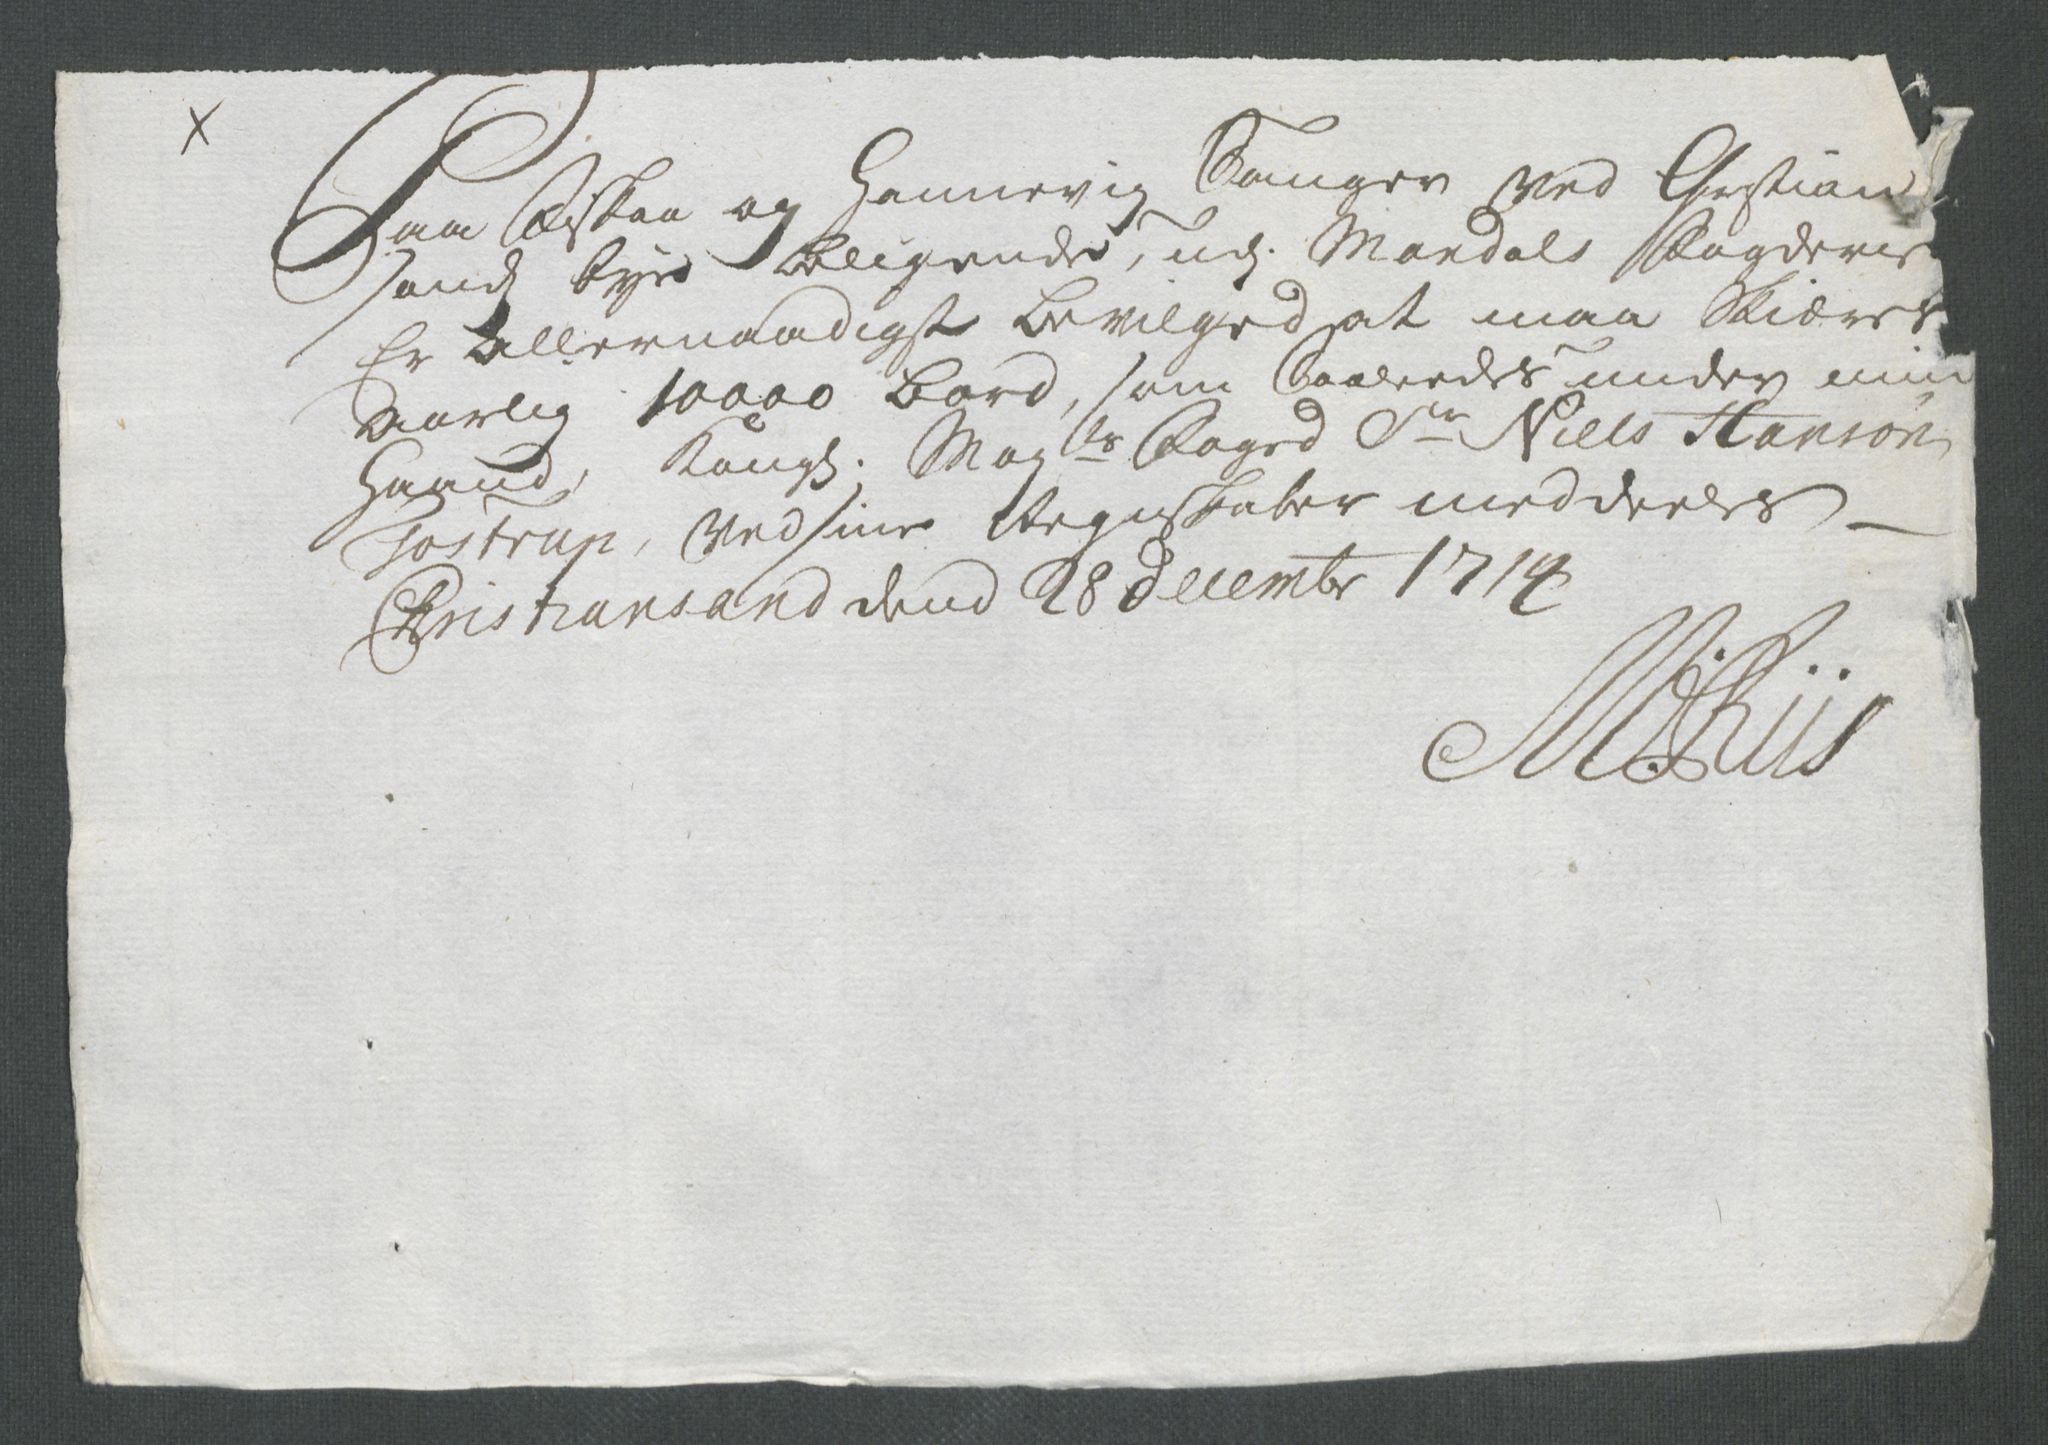 x
Paa Øskaa og Hannevig Sauger ved Christian
sands bye beligende, ud. Mandals Fogderie
Er allernaadigst bevilged at maa Skiæres
aarlig 10000 bord, som Saaledes under min
Haand, Kongl. May.ts Foged Sr. Niels Hansøn
Tostrup, ved sine Regnskaber meddeels
Christiansand dend 28 December 1714
Riis